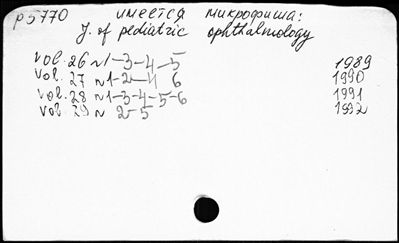 p5770 имеется микрофиша:
J. of pediatric ophthalmology
vol. 26 N1-3-4-5 1989
vol. 27 N1-2-4 6 1990
vol. 28 N1-3-4-5-6 1991
vol. 29 N 2-5 1992